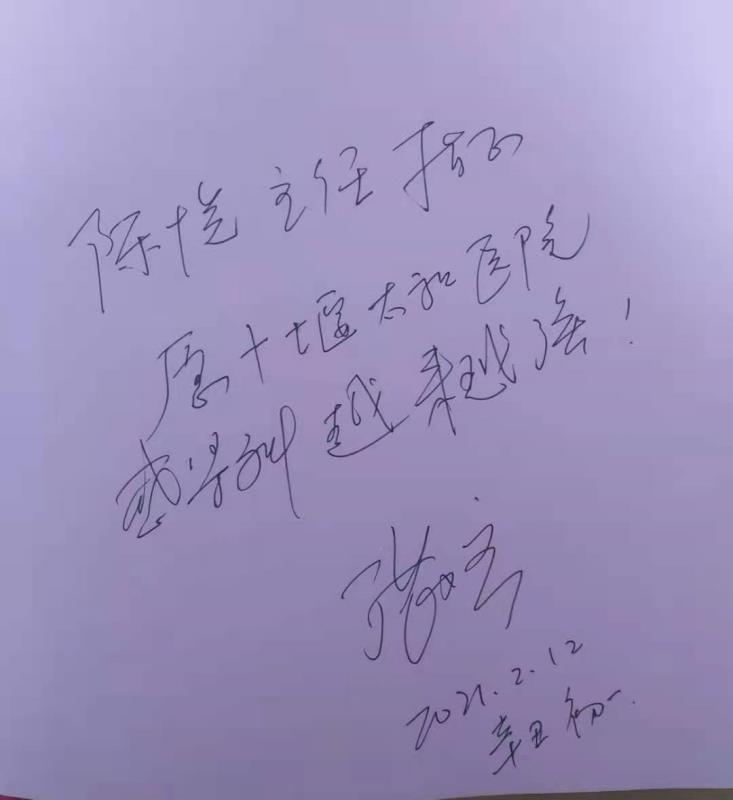 陈主任指正
愿十堰太和医院
感染科越来越强！
2021.2.12
辛丑初一